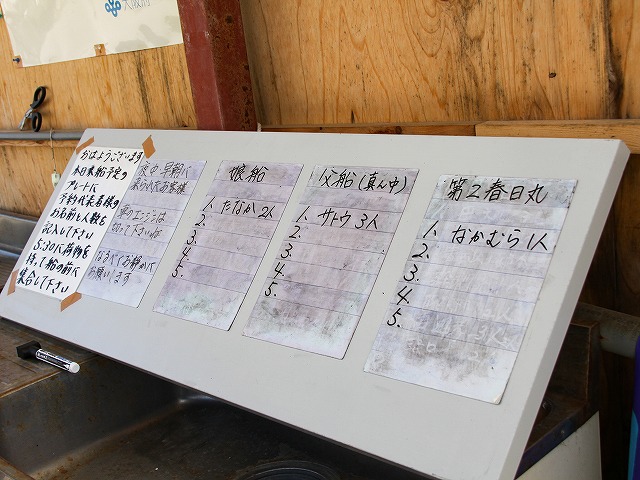 大阪府
おはようございます
本日乗船予定の
プレートに
予約代表者様の
お名前と人数を
記入して下さい
5:30に荷物を
持って船の前に
集合して下さい
夜中 早朝に
来られたお客様
車のエンジンは
切って下さいね
なるべくお静かに
お願います
娘船
1. たなか 2人
2.
3.
4.
5.
父船(真ん中)
1. サトウ 3人
2.
3.
4.
5.
第2春日丸
1. なかむら 1人
2.
3.
4.
5.